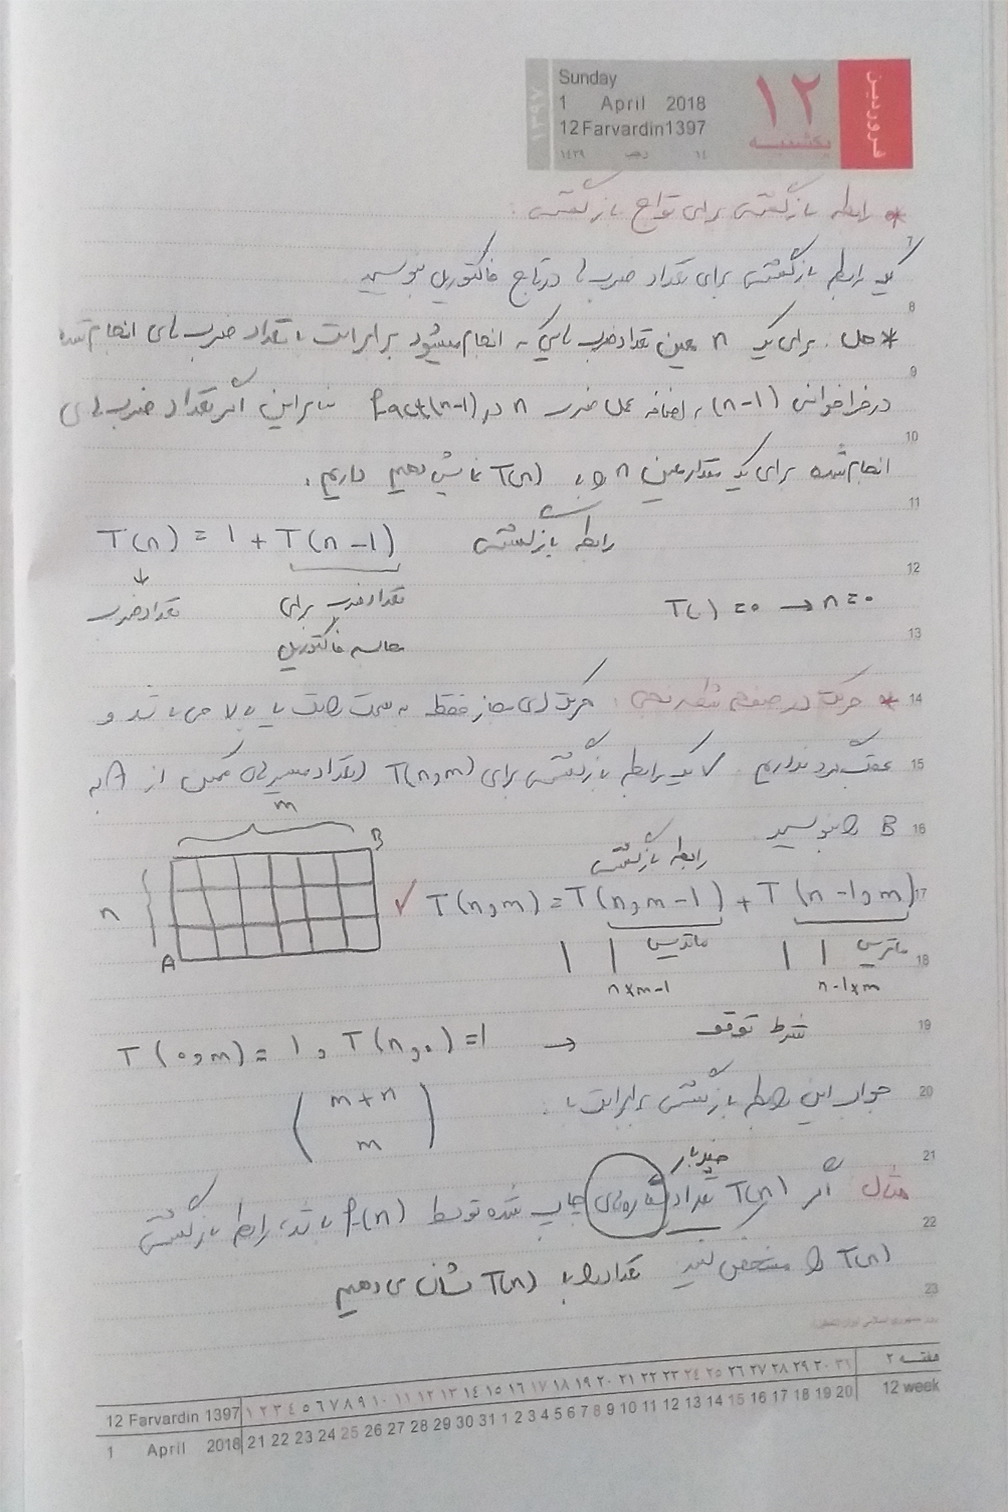 Sunday
1 April 2018
12 Farvardin 1397
۱۴ رجب ۱۴۳۹
۱۲
یکشنبه
فروردین
۱۳۹۷
* رابطه بازگشتی برای توابع بازگشتی:
7
یک رابطه بازگشتی برای تعداد ضرب ها در تابع فاکتوریل بنویسید
8
* حل. برای یک n معین تعداد ضرب هایی که انجام میشود برابر است با تعداد ضرب های انجام شده
9
در فراخوانی (n-1) به اضافه عمل ضرب n در fact(n-1) بنابراین اگر تعداد ضرب های
10
انجام شده برای یک مقدار معین n را با T(n) نمایش دهیم داریم:
11
T(n) = 1 + T(n-1) رابطه بازگشتی
12
تعداد ضرب تعداد ضرب برای
محاسبه فاکتوریل
T(0) = 0 → n = 0
13
14
* حرکت در صفحه شطرنجی: حرکت های مجاز فقط به سمت راست یا بالا می باشد و
15
عقب گرد نداریم. یک رابطه بازگشتی برای T(n,m) (تعداد مسیرهای ممکن از A به
16
B را بنویسید
m
B
n
A
رابطه بازگشتی
17
✓ T(n,m) = T(n,m-1) + T(n-1,m)
18
ماتریس ماتریس
n×m-1 n-1×m
19
T(0,m) = 1 , T(n,0) = 1 → شرط توقف
20
جواب این رابطه بازگشتی برابر است با:
(m+n
m)
21
چند بار
مثال اگر T(n) تعداد های چاپ شده توسط f(n) باشد، رابطه بازگشتی
22
T(n) را مشخص کنید تعداد را با T(n) نشان می دهیم
23
روز جمهوری اسلامی ایران (تعطیل)
هفته ۲
۱ ۲ ۳ ۴ ۵ ۶ ۷ ۸ ۹ ۱۰ ۱۱ ۱۲ ۱۳ ۱۴ ۱۵ ۱۶ ۱۷ ۱۸ ۱۹ ۲۰ ۲۱ ۲۲ ۲۳ ۲۴ ۲۵ ۲۶ ۲۷ ۲۸ ۲۹ ۳۰ ۳۱
12 Farvardin 1397
12 week
1 April 2018
21 22 23 24 25 26 27 28 29 30 31 1 2 3 4 5 6 7 8 9 10 11 12 13 14 15 16 17 18 19 20